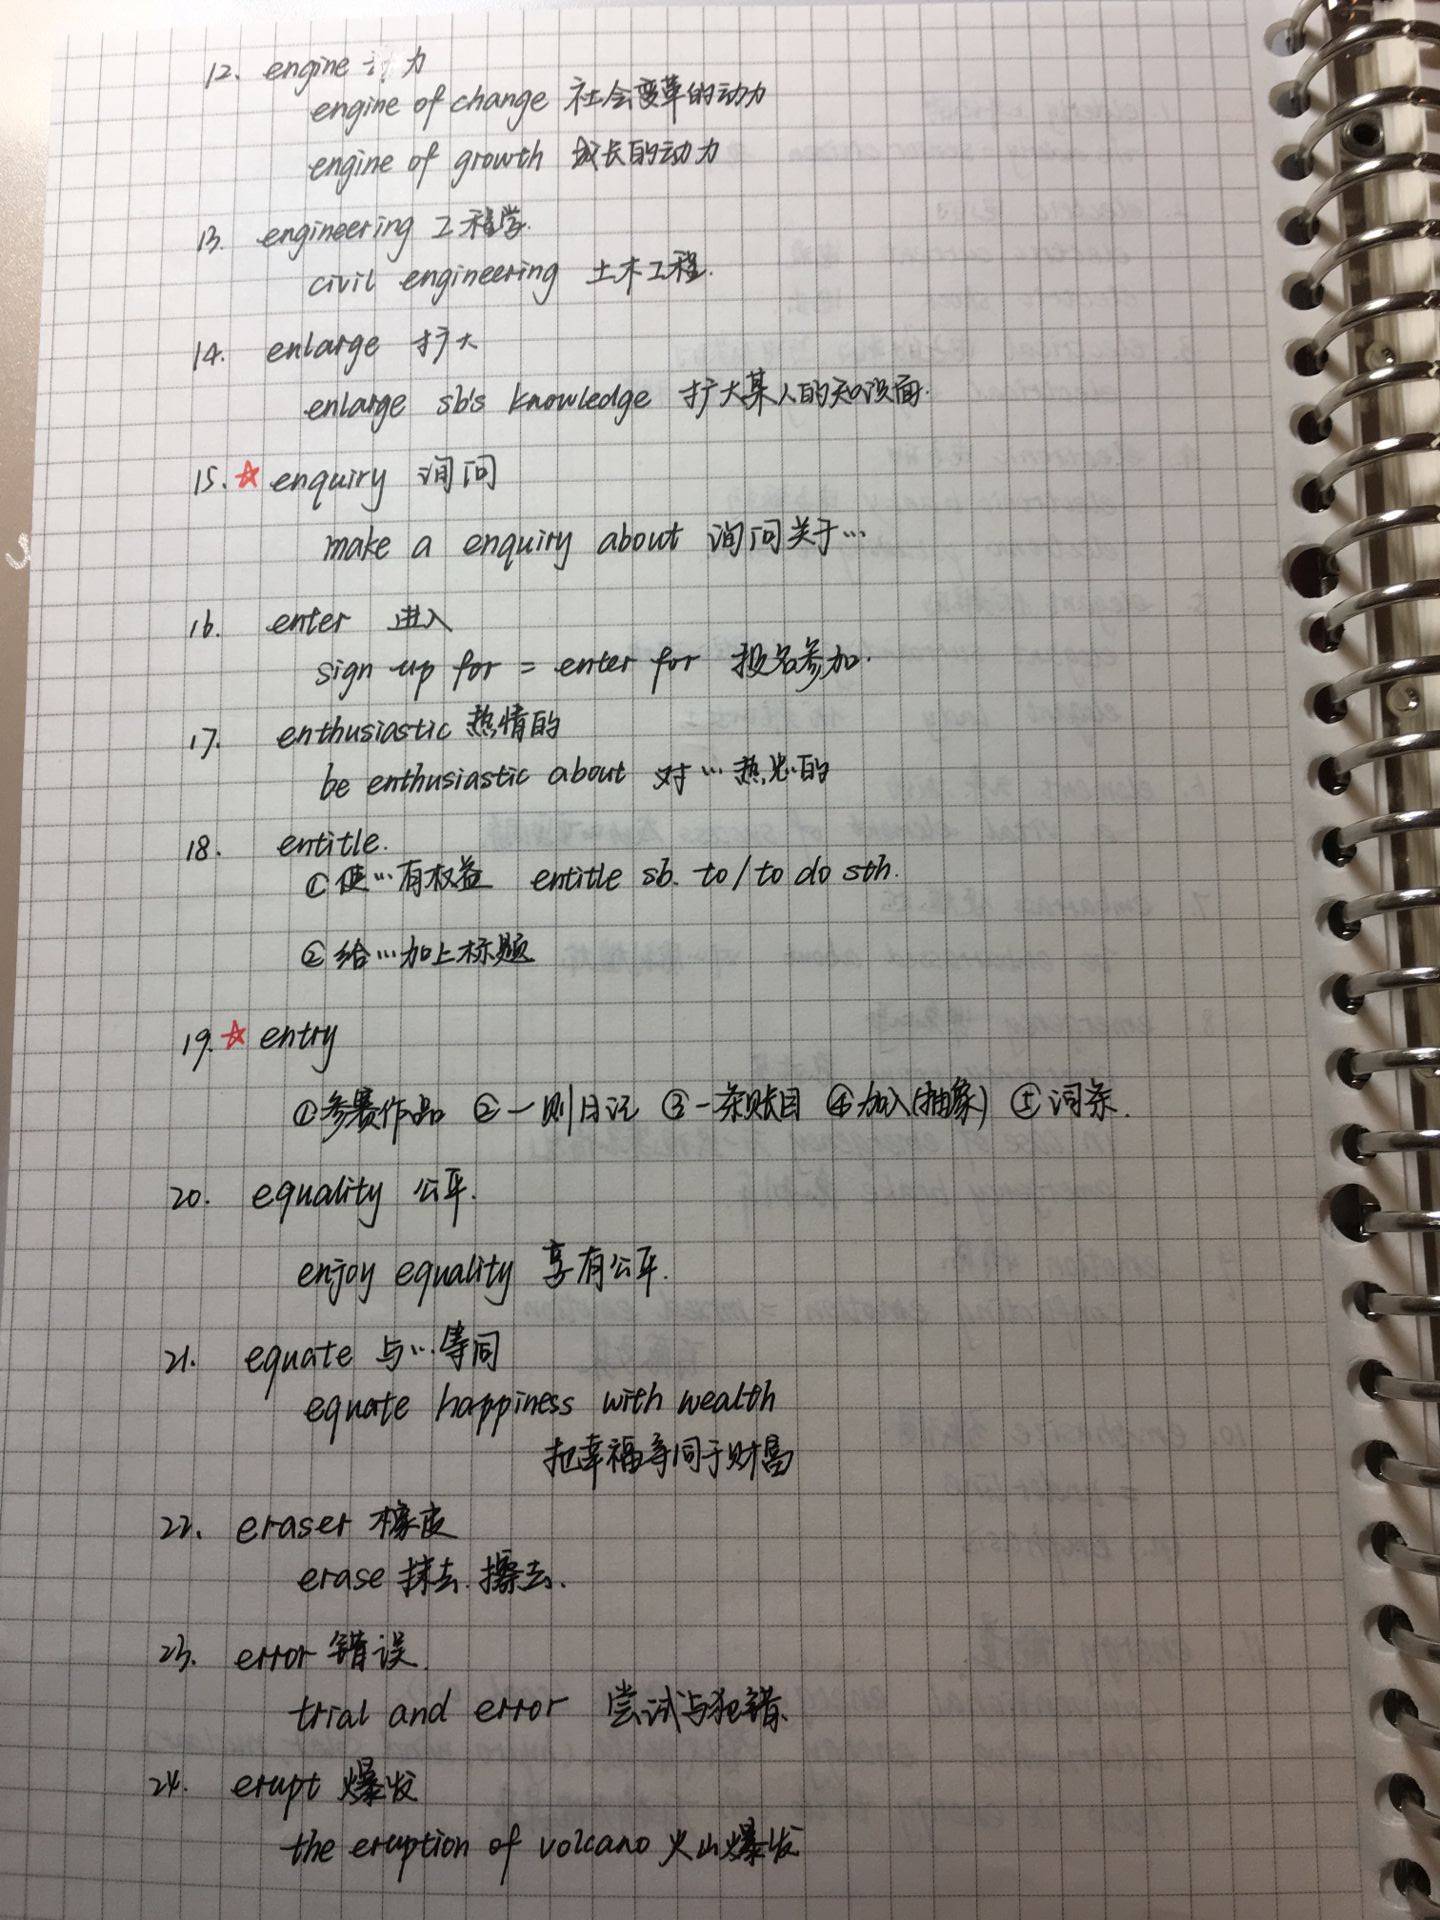 12. engine 动力
engine of change 社会变革的动力
engine of growth 成长的动力
13. engineering 工程学.
civil engineering 土木工程.
14. enlarge 扩大
enlarge sb's knowledge 扩大某人的知识面.
15. ☆ enquiry 询问
make a enquiry about 询问关于…
16. enter 进入
sign up for = enter for 报名参加.
17. enthusiastic 热情的
be enthusiastic about 对…热忠的
18. entitle.
① 使…有权益 entitle sb. to / to do sth.
② 给…加上标题
19. ☆ entry
①参赛作品 ②一则日记 ③一条账目 ④加入(抽象) ⑤词条.
20. equality 公平.
enjoy equality 享有公平.
21. equate 与…等同
equate happiness with wealth
把幸福等同于财富
22. eraser 橡皮
erase 抹去. 擦去.
23. error 错误.
trial and error 尝试与犯错.
24. erupt 爆发
the eruption of volcano 火山爆发